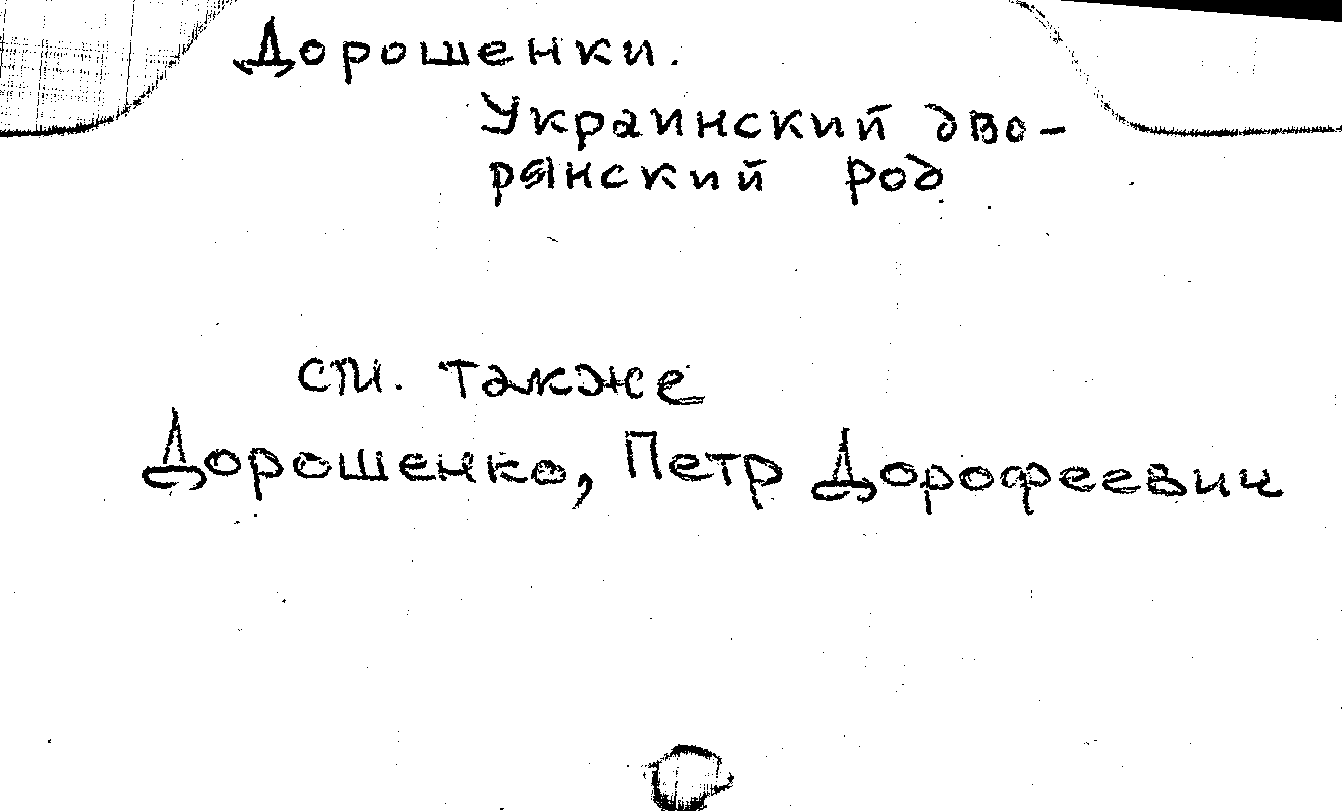 Дорошенки.
Украинский дво-
рянский род
см. также
Дорошенко, Петр Дорофеевич